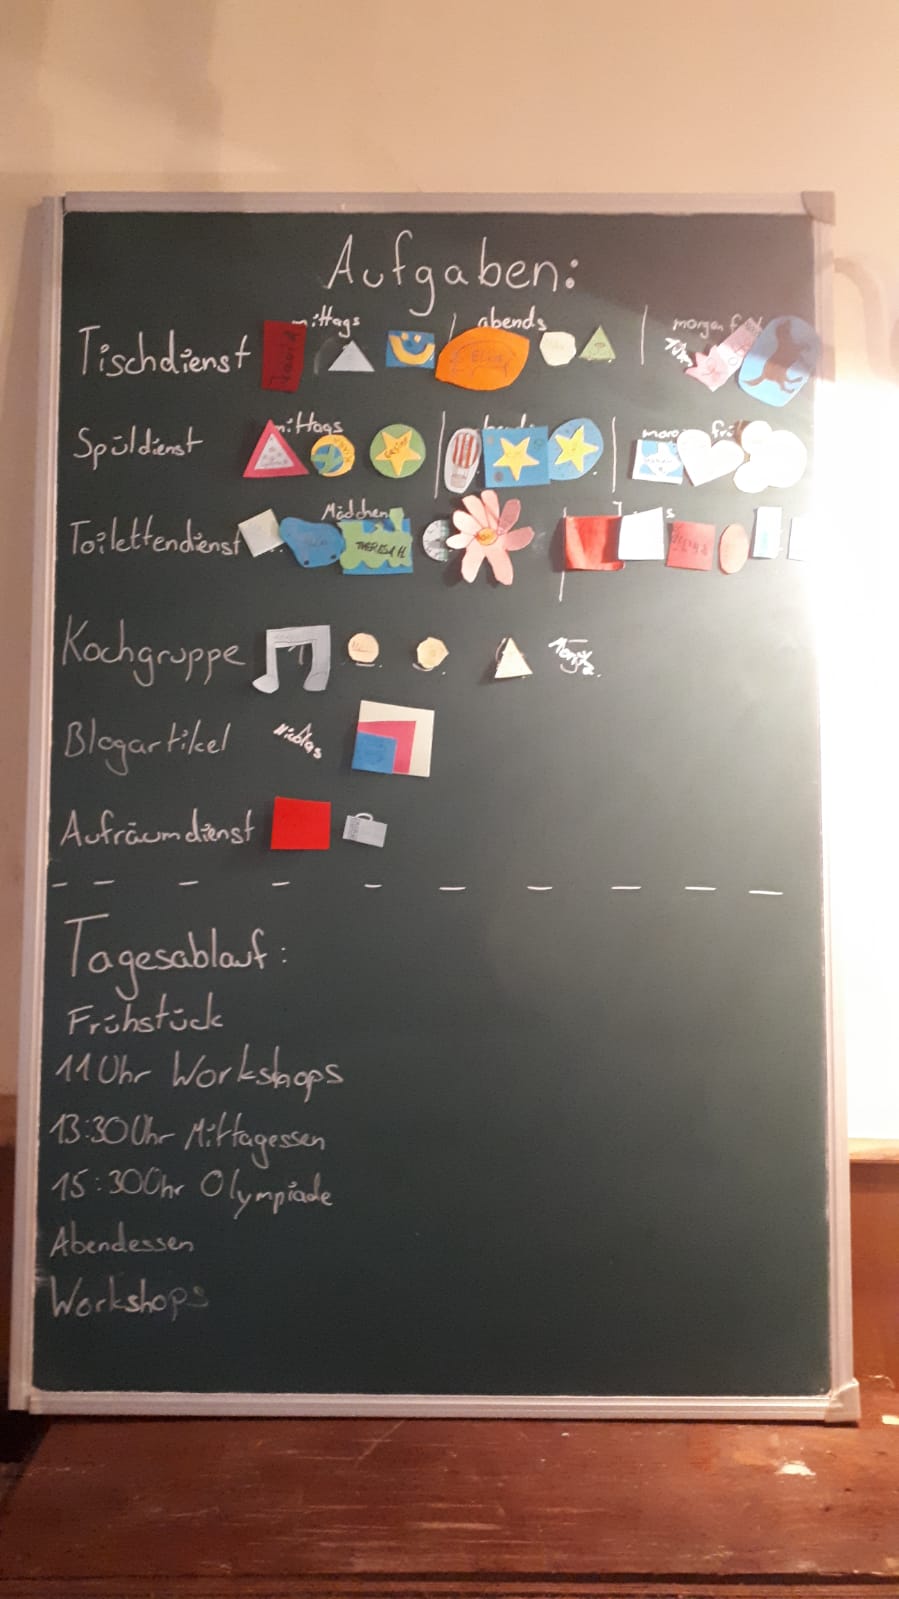 Aufgaben:
mittags abends morgen früh
Tischdienst David Elias
mittags
Spüldienst
Mädchen
Toilettendienst THERESA H.
Kochgruppe
Blogartikel Nicolas
Aufräumdienst
Tagesablauf:
Frühstück
11 Uhr Workshops
13:30 Uhr Mittagessen
15:30 Uhr Olympiade
Abendessen
Workshops